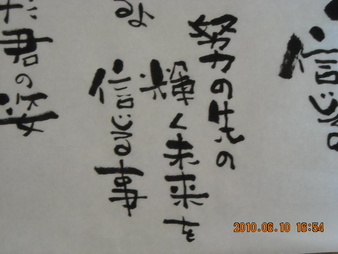 信じる
努力の先の
輝く未来を
信じる事
るよ
だ君の姿
2010.06.10 16:54